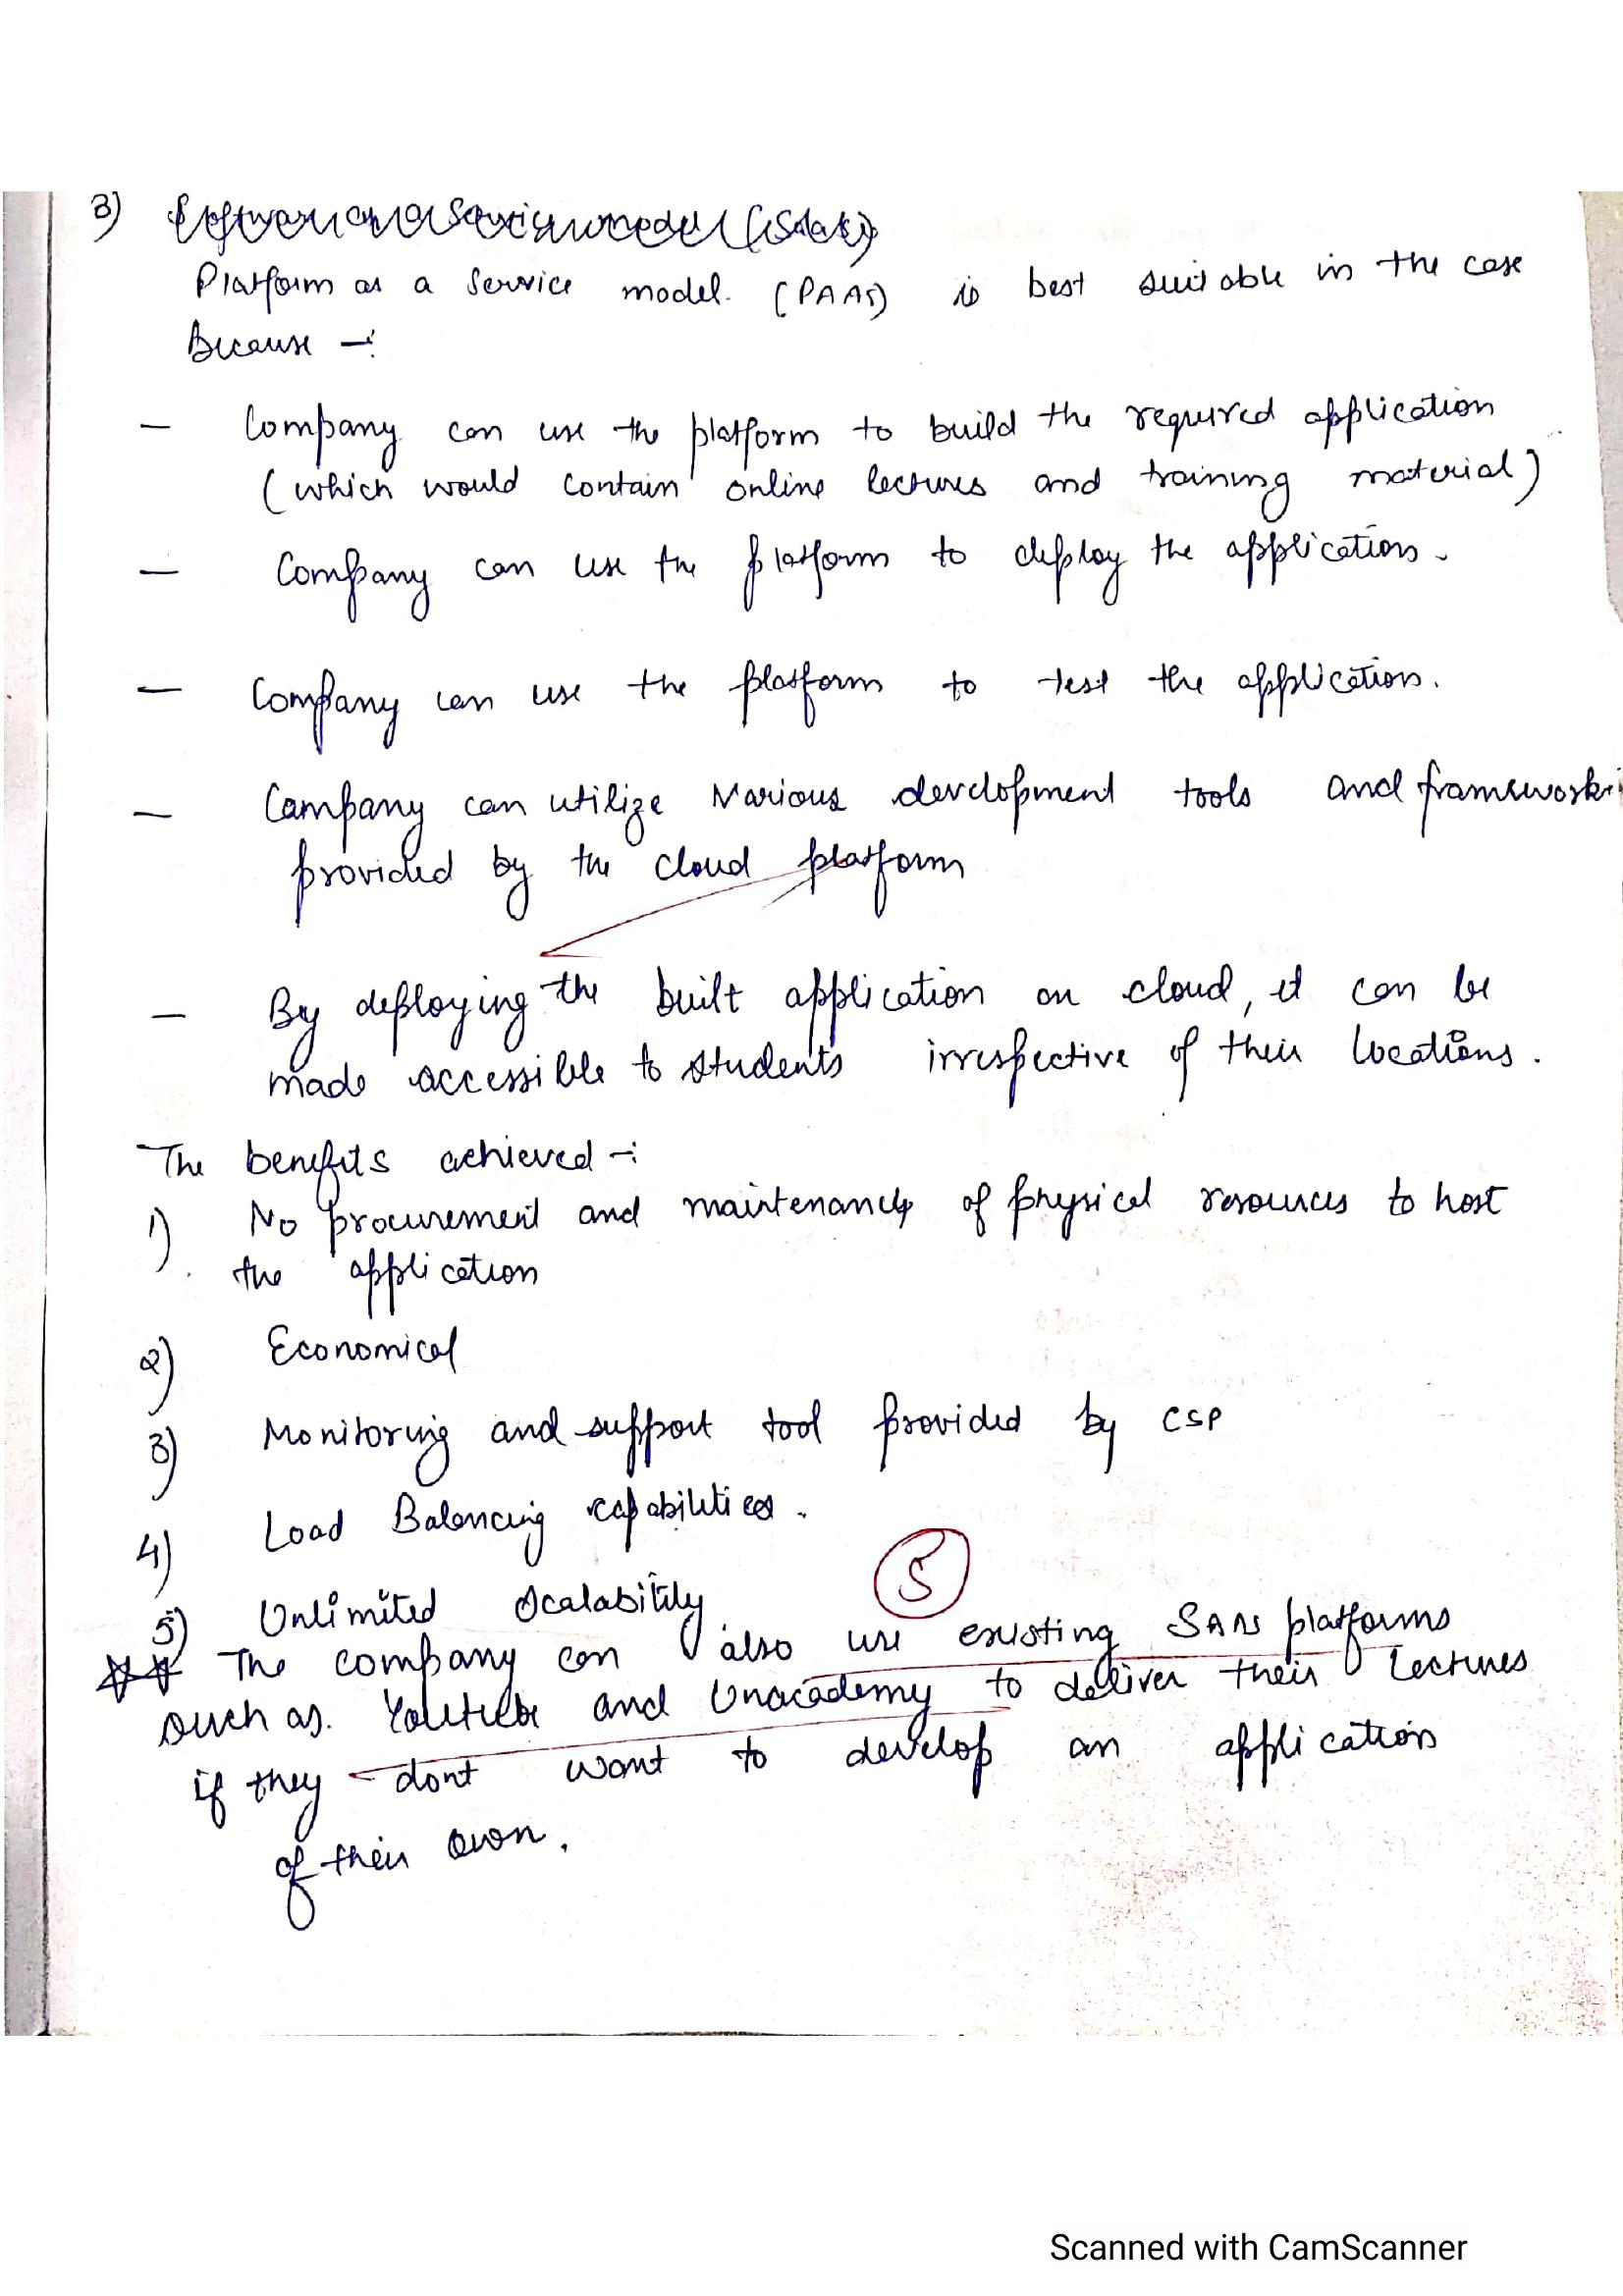 3) Software as a Service model (SaaS)
Platform as a Service model. (PAAS) is best suitable in the case
Because -:
- Company can use the platform to build the required application
(which would contain online lectures and training material)
- Company can use the platform to deploy the application.
- Company can use the platform to test the application.
- Company can utilize various development tools and frameworks
provided by the cloud platform
- By deploying the built application on cloud, it can be
made accessible to students irrespective of their locations.
The benefits achieved -:
1) No procurement and maintenance of physical resources to host
the application
2) Economical
3) Monitoring and support tool provided by CSP
4) Load Balancing capabilities.
5
5) Unlimited Scalability
** The company can also use existing SAAS platforms
such as. Youtube and Unacademy to deliver their lectures
if they dont want to develop an application
of their own.
Scanned with CamScanner